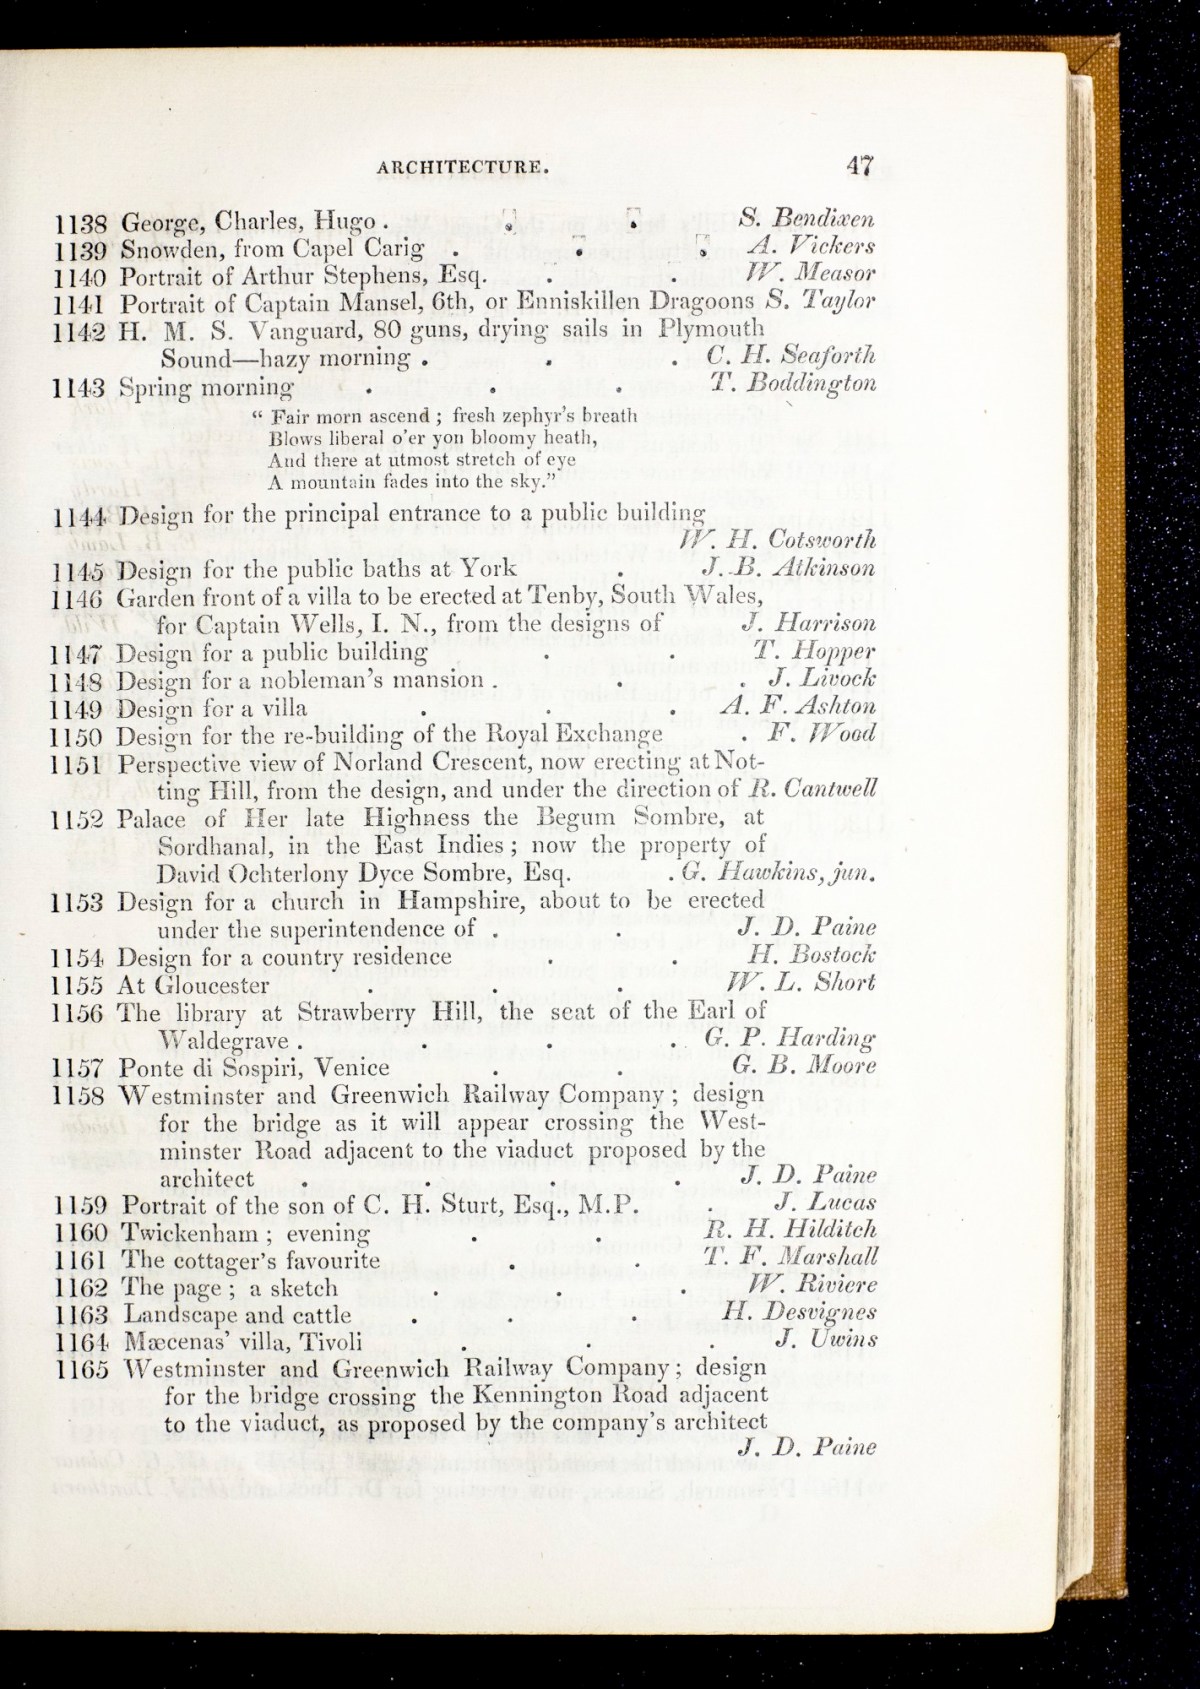 ARCHITECTURE. 47
1138 George, Charles, Hugo . . . S. Bendixen
1139 Snowden, from Capel Carig . . . A. Vickers
1140 Portrait of Arthur Stephens, Esq. . W. Measor
1141 Portrait of Captain Mansel, 6th, or Enniskillen Dragoons S. Taylor
1142 H. M. S. Vanguard, 80 guns, drying sails in Plymouth
Sound—hazy morning . . . C. H. Seaforth
1143 Spring morning . . . T. Boddington
“ Fair morn ascend ; fresh zephyr’s breath
Blows liberal o’er yon bloomy heath,
And there at utmost stretch of eye
A mountain fades into the sky.”
1144 Design for the principal entrance to a public building
W. H. Cotsworth
1145 Design for the public baths at York . J. B. Atkinson
1146 Garden front of a villa to be erected at Tenby, South Wales,
for Captain Wells, I. N., from the designs of J. Harrison
1147 Design for a public building . . T. Hopper
1148 Design for a nobleman’s mansion . . . J. Livock
1149 Design for a villa . . . A. F. Ashton
1150 Design for the re-building of the Royal Exchange . F. Wood
1151 Perspective view of Norland Crescent, now erecting at Not-
ting Hill, from the design, and under the direction of R. Cantwell
1152 Palace of Her late Highness the Begum Sombre, at
Sordhanal, in the East Indies ; now the property of
David Ochterlony Dyce Sombre, Esq. . G. Hawkins, jun.
1153 Design for a church in Hampshire, about to be erected
under the superintendence of . . J. D. Paine
1154 Design for a country residence . . H. Bostock
1155 At Gloucester . . . W. L. Short
1156 The library at Strawberry Hill, the seat of the Earl of
Waldegrave . . . . G. P. Harding
1157 Ponte di Sospiri, Venice . . G. B. Moore
1158 Westminster and Greenwich Railway Company ; design
for the bridge as it will appear crossing the West-
minster Road adjacent to the viaduct proposed by the
architect . . . . J. D. Paine
1159 Portrait of the son of C. H. Sturt, Esq., M.P. . J. Lucas
1160 Twickenham ; evening . . R. H. Hilditch
1161 The cottager’s favourite . . T. F. Marshall
1162 The page ; a sketch . . . W. Riviere
1163 Landscape and cattle . . . H. Desvignes
1164 Mæcenas’ villa, Tivoli . . . J. Uwins
1165 Westminster and Greenwich Railway Company ; design
for the bridge crossing the Kennington Road adjacent
to the viaduct, as proposed by the company’s architect
J. D. Paine